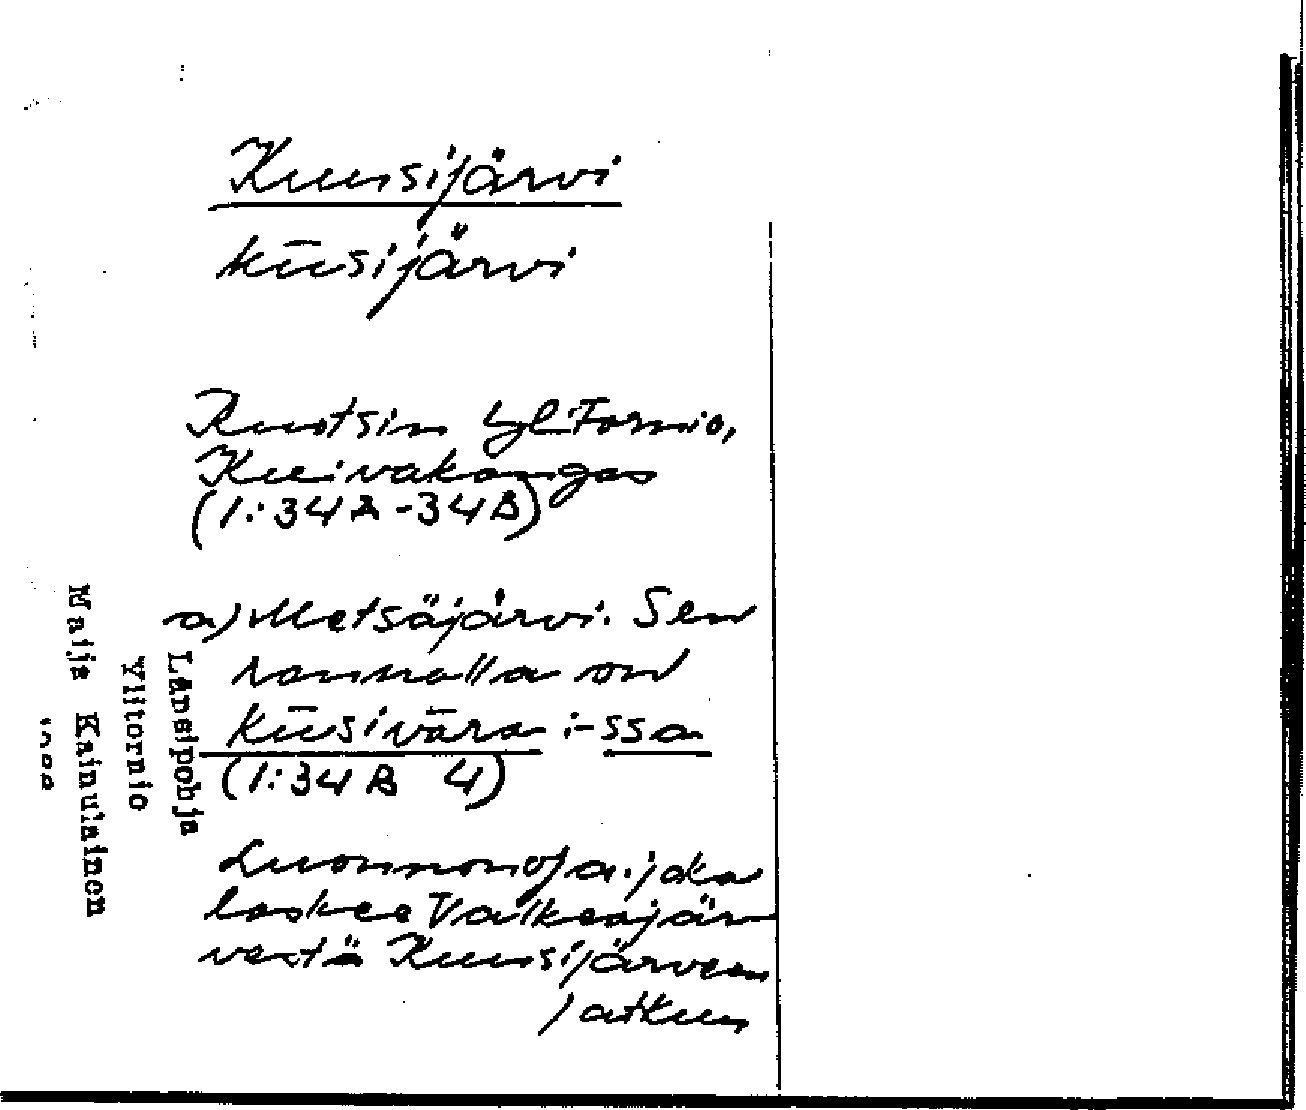 Kuusijärvi
kūsijärvi
Ruotsin Yl:Tornio,
Kuivakangas
(1:34A-34B)
a) Metsäjärvi. Sen
rannalla on
kūsivāra i-ssa
(1:34B 4)
Luonnonoja, joka
laskee Valkeajär
vestä Kuusijärveen
jatkuu
Länsipohja
Ylitornio
Maija Kainulainen